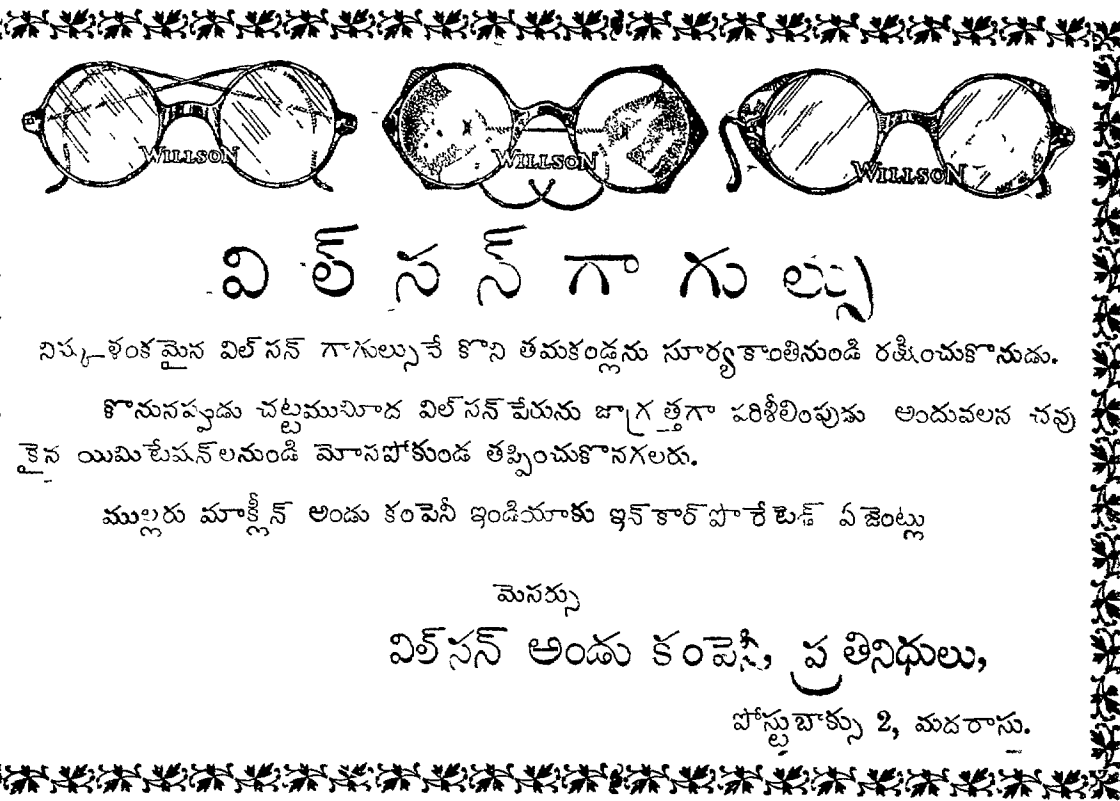 WILLSON WILLSON WILLSON
విల్సన్ గాగుల్సు
నిష్కళంకమైన విల్‌సన్ గాగుల్సునే కొని తమకండ్లను సూర్యకాంతినుండి రక్షించుకొనుడు.
కొనునప్పుడు చట్టముమీద విల్‌సన్ పేరును జాగ్రత్తగా పరిశీలింపుడు అందువలన చవు
కైన యిమిటేషన్‌లనుండి మోసపోకుండ తప్పించుకొనగలరు.
ముల్లరు మాక్లీన్ అండు కంపెనీ ఇండియాకు ఇన్‌కార్‌పొరేటెడ్ ఏజెంట్లు
మెసర్సు
విల్‌సన్ అండు కంపెనీ, ప్రతినిధులు,
పోస్టుబాక్సు 2, మదరాసు.